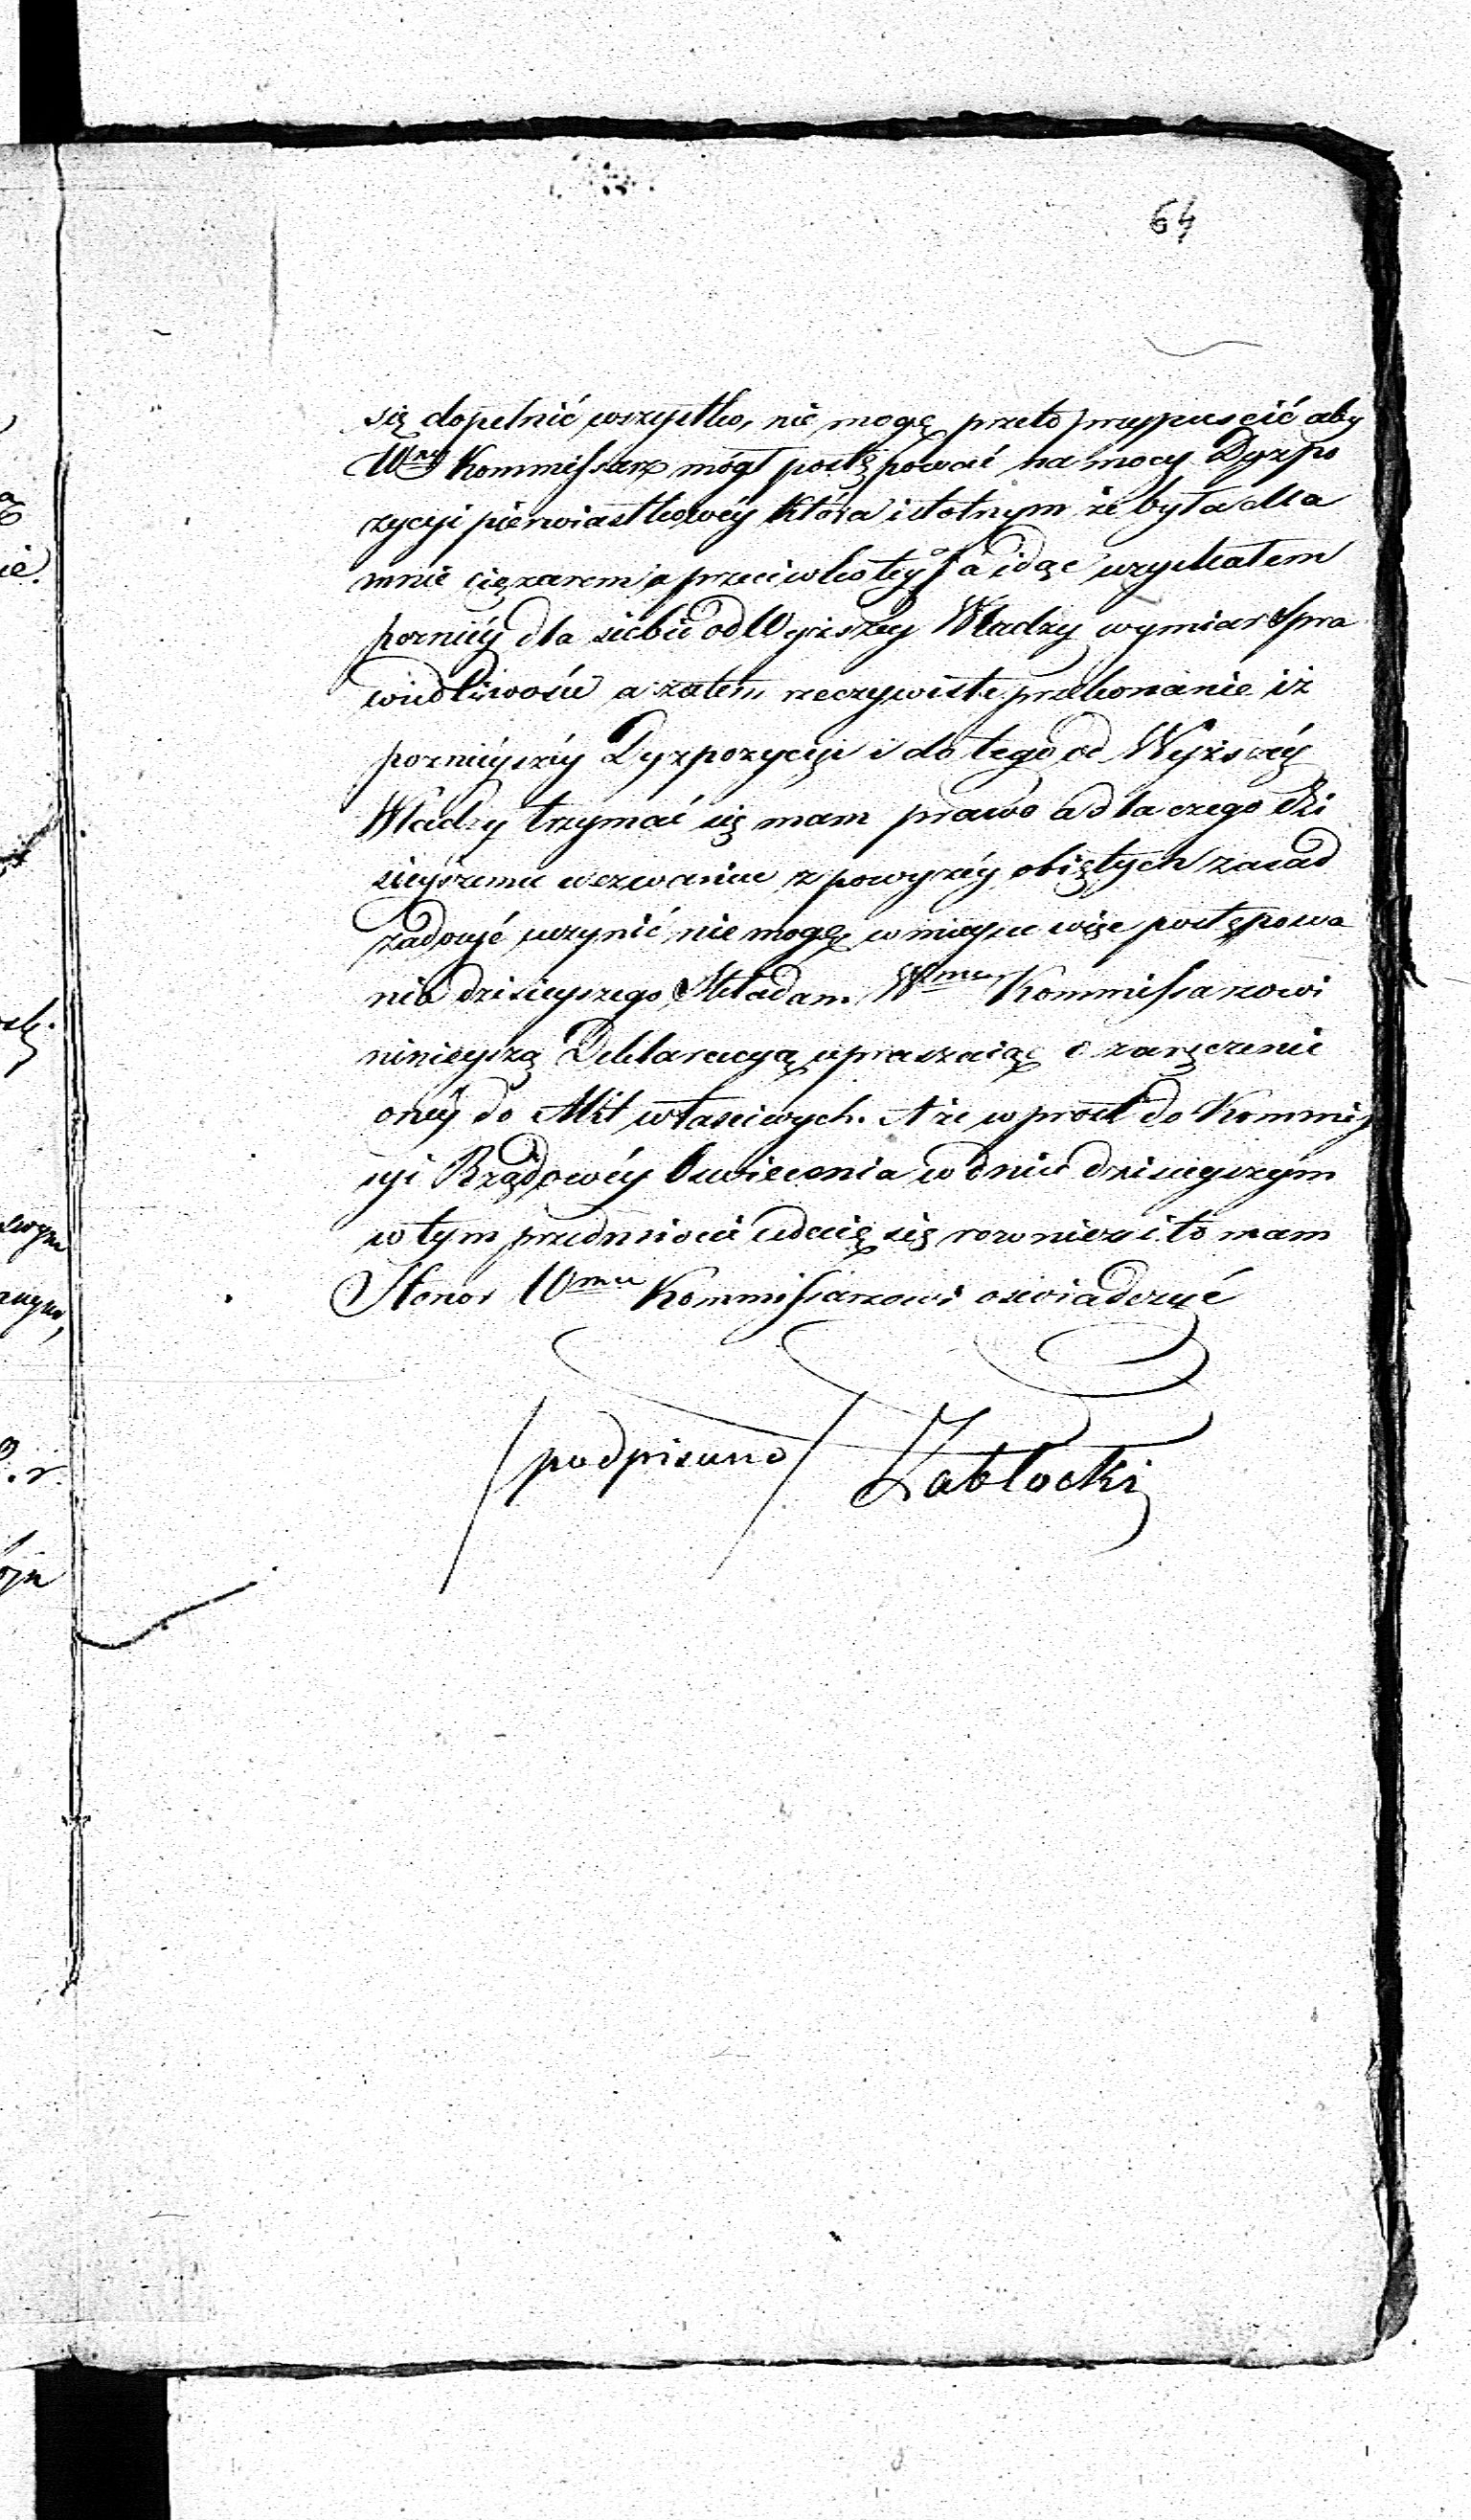 64
się dopełnić wszystko, nie mogę przeto przypuścić aby
Wny Kommissarz mógł postępować na mocy Dyzpo
zycyi pierwiastkowéy która istotnym że była dla
mnie ciężarem a przeciwko téy idąc uzyskałem
pozniéy dla siebie od Wyższey Władzy wymiar Spra
wiedliwości a zatem rzeczywiste przekonanie iż
pozniéyszéy Dyzpozycyi i do tego od Wyższéy
Władzy trzymać się mam prawo a dla czego dzi
sieyszemu wezwaniu z powyżéy obiętych zasad
zadosyć uczynić nie mogę w mieyscu więc postępowa
nia dzisieyszego Składam Wmu Kommissarzowi
ninieyszą Deklaracyą upraszaiąc o zaręczenie
onéy do Akt właściwych. A że wprost do Kommis
syi Rządowéy Oswiecenia w dniu dzisieyszym
w tym przedmiocie udaię się rownież i to mam
Honor Wmu Kommissarzowi oswiadczyć
/podpisano/ Zabłocki